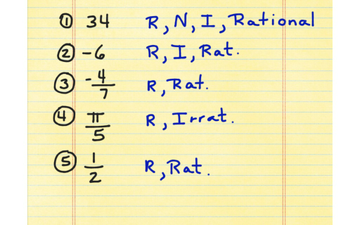 ① 34 R, N, I, Rational
② -6 R, I, Rat.
③ -4/7 R, Rat.
④ π/5 R, Irrat.
⑤ 1/2 R, Rat.